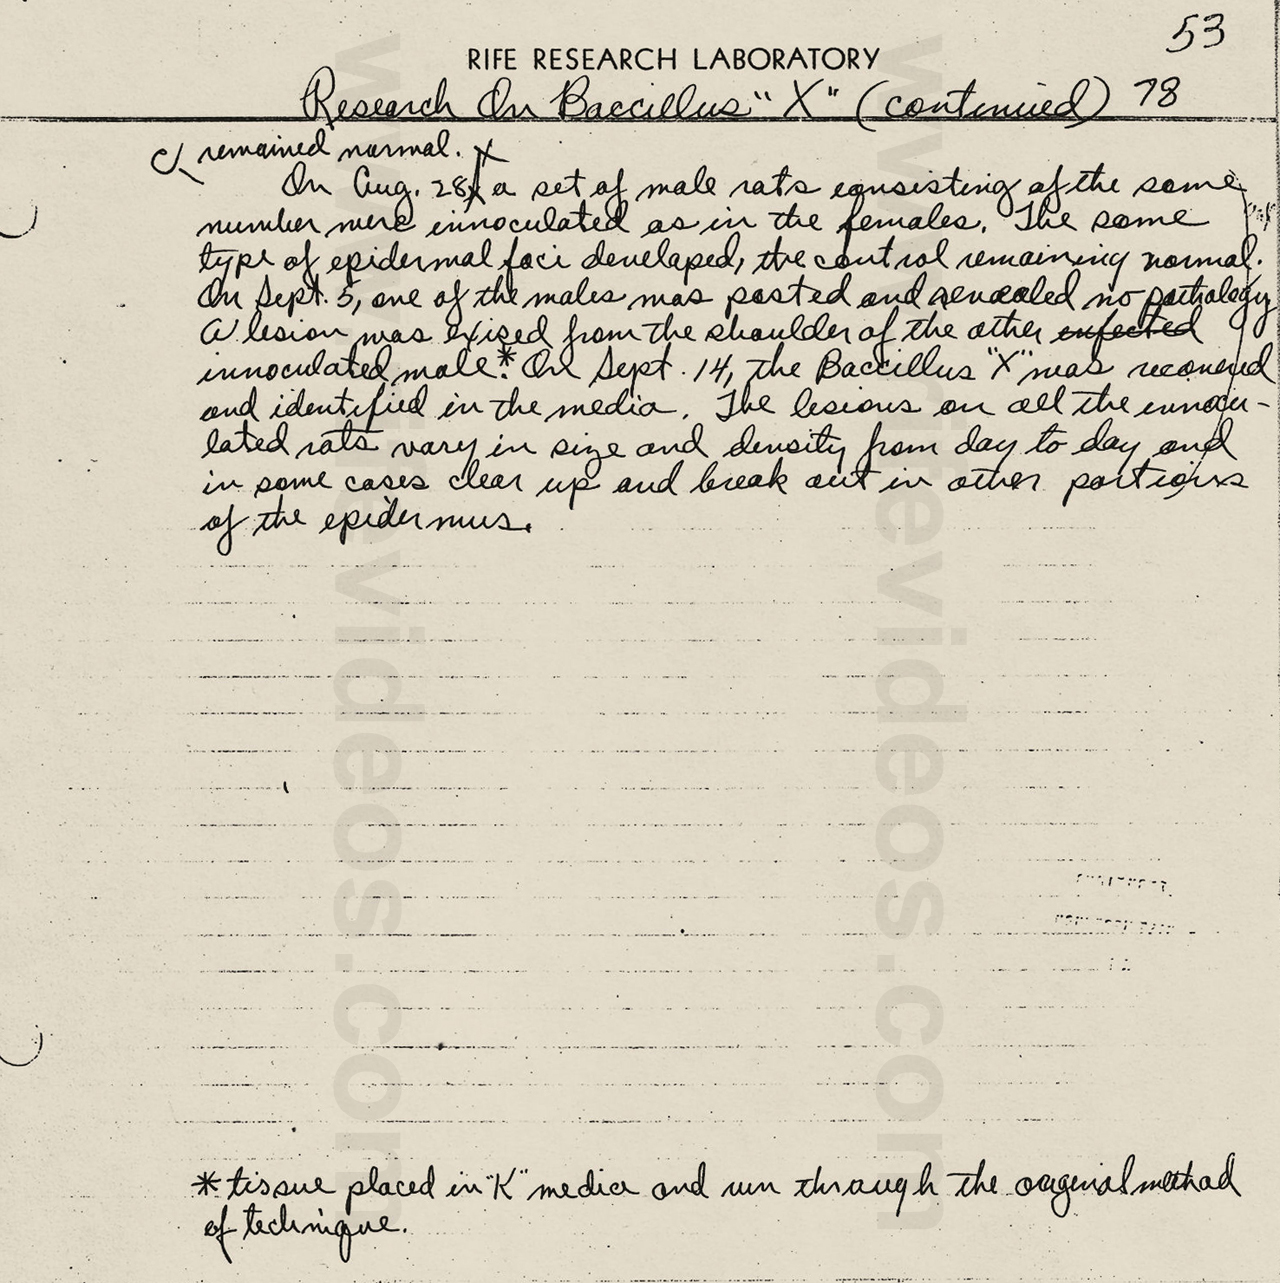 53
RIFE RESEARCH LABORATORY
Research On Baccillus "X" (continued) 78
remained normal.
On Aug. 28, a set of male rats consisting of the same
number were innoculated as in the females. The same
type of epidermal foci developed, the control remaining normal.
On Sept. 5, one of the males was posted and revealed no pathology
A lesion was exised from the shoulder of the other infected
innoculated male.* On Sept. 14, the Baccillus "X" was recovered
and identified in the media. The lesions on all the innocu-
lated rats vary in size and density from day to day and
in some cases clear up and break out in other portions
of the epidermus.
* tissue placed in "K" media and run through the original method
of technique.
www.rifevideos.com
www.rifevideos.com